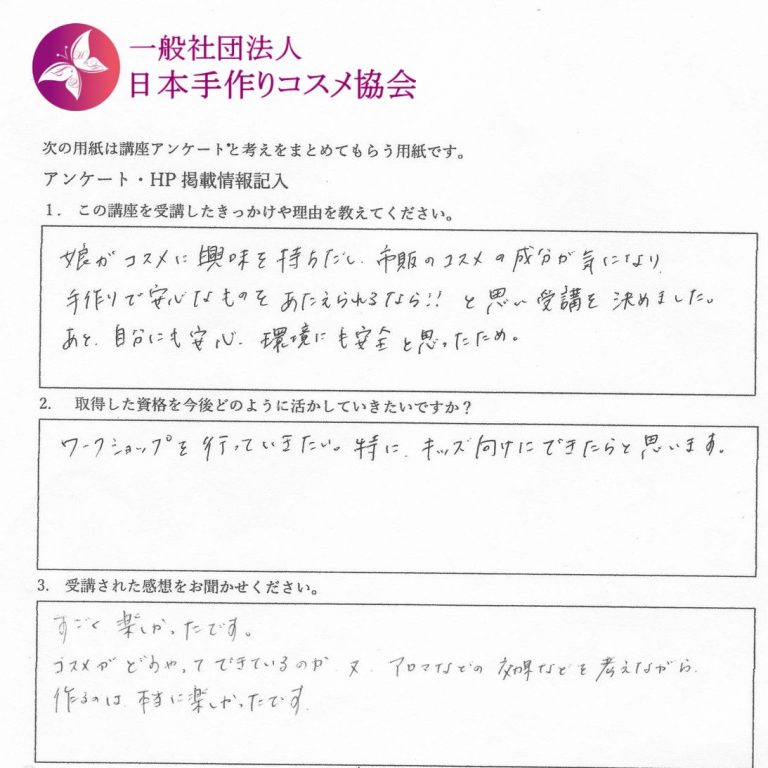 一般社団法人
日本手作りコスメ協会
次の用紙は講座アンケートと考えをまとめてもらう用紙です。
アンケート・HP 掲載情報記入
1. この講座を受講したきっかけや理由を教えてください。
娘がコスメに興味を持ちだし、市販のコスメの成分が気になり、
手作りで安心なものをあたえられるなら!! と思い受講を決めました。
あと、自分にも安心、環境にも安全と思ったため。
2. 取得した資格を今後どのように活かしていきたいですか？
ワークショップを行っていきたい。特に、キッズ向けにできたらと思います。
3. 受講された感想をお聞かせください。
すごく楽しかったです。
コスメがどうやってできているのか、又、アロマなどの効果などを考えながら、
作るのは、本当に楽しかったです。